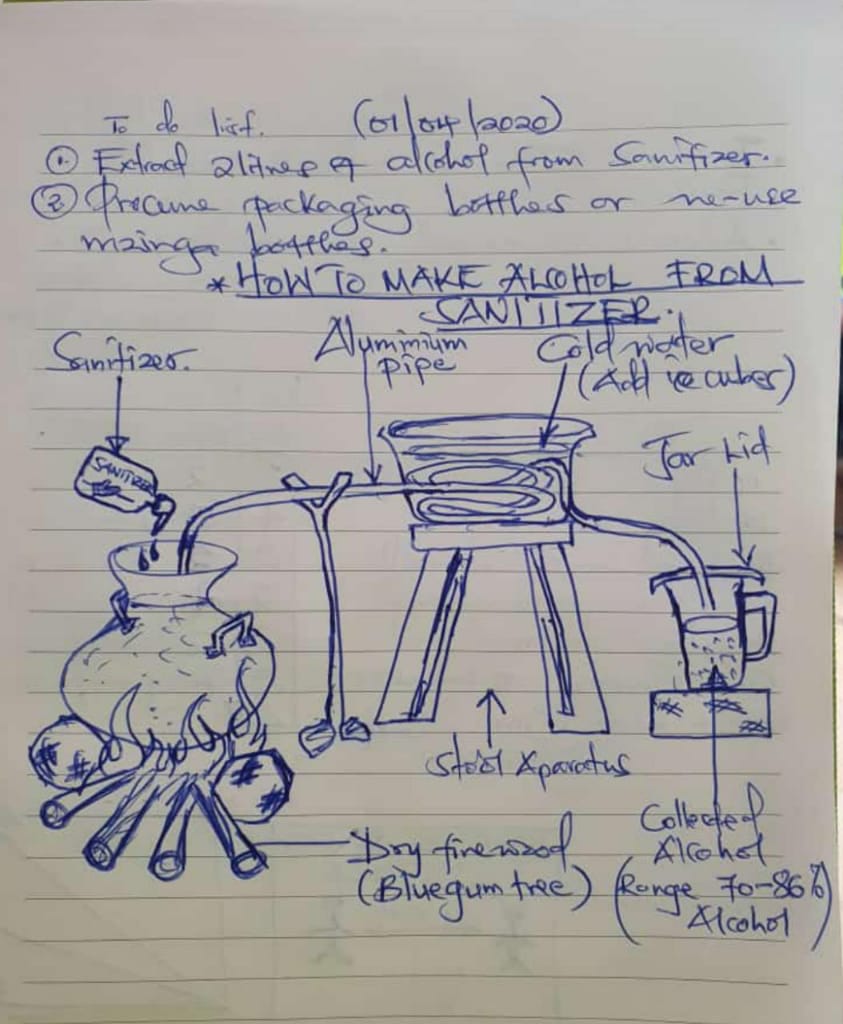 To do list. (01/04/2020)
① Extract 2litres of alcohol from Sanitizer.
② Procure packaging bottles or re-use
mzinga bottles.
* HOW TO MAKE ALCOHOL FROM
SANITIZER.
Sanitizer.
Aluminium
pipe
Cold water
(Add ice cubes)
Jar Lid
SANITIZER
Stool Aparatus
Dry firewood
(Bluegum tree)
Collected
Alcohol
(Range 70-86%
Alcohol)